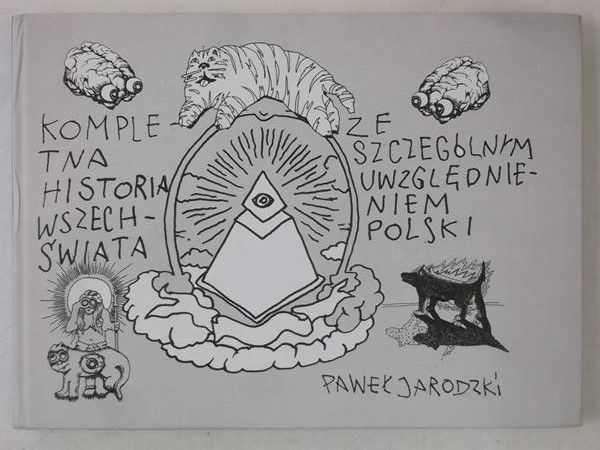 KOMPLE-
TNA
HISTORIA
WSZECH-
ŚWIATA
ZE
SZCZEGÓLNYM
UWZGLĘDNIE-
NIEM
POLSKI
PAWEŁ JARODZKI